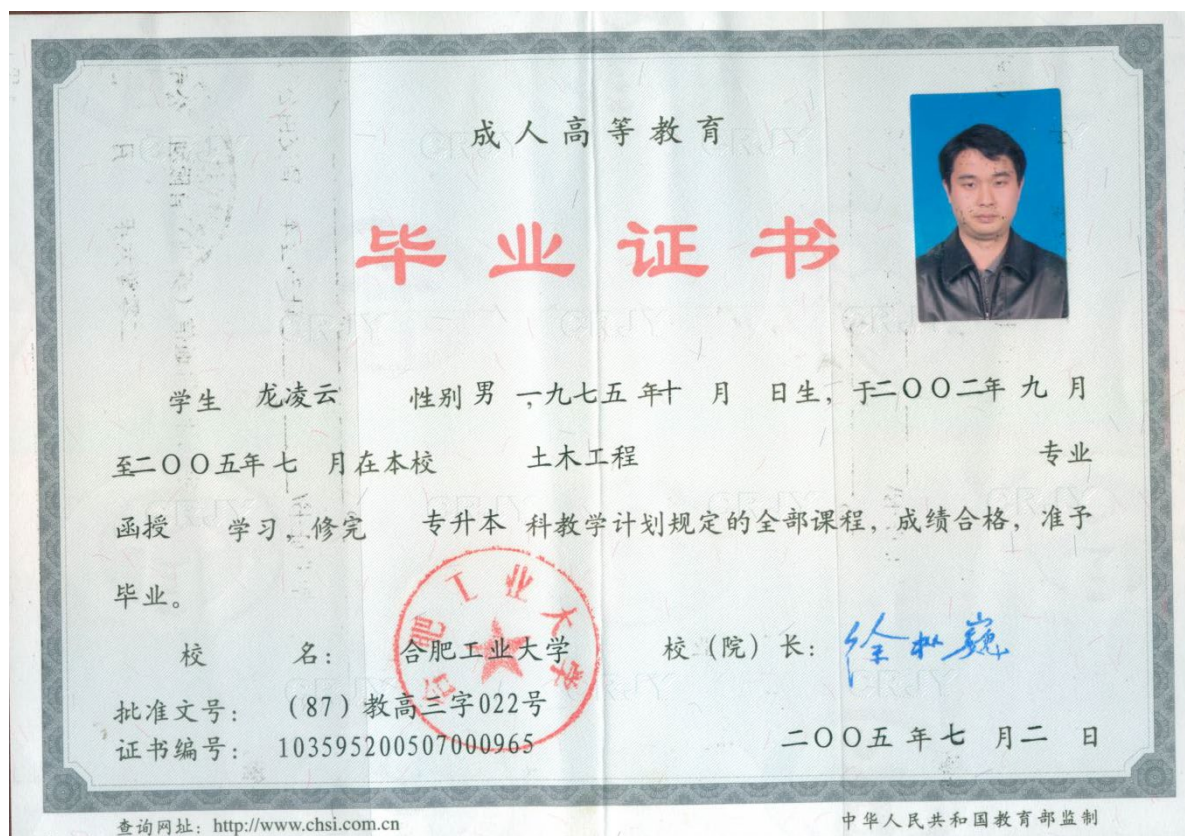 成人高等教育
毕业证书
学生 龙凌云 性别 男 ,一九七五 年十 月 日生，于二〇〇二年 九 月
至二〇〇五年 七 月在本校 土木工程 专业
函授 学习，修完 专升本 科教学计划规定的全部课程，成绩合格，准予
毕业。
校 名： 合肥工业大学 校（院）长： 徐枞巍
合肥工业大学
批准文号： （87）教高三字022号
证书编号： 103595200507000965 二〇〇五 年 七 月 二 日
查询网址：http://www.chsi.com.cn 中华人民共和国教育部监制